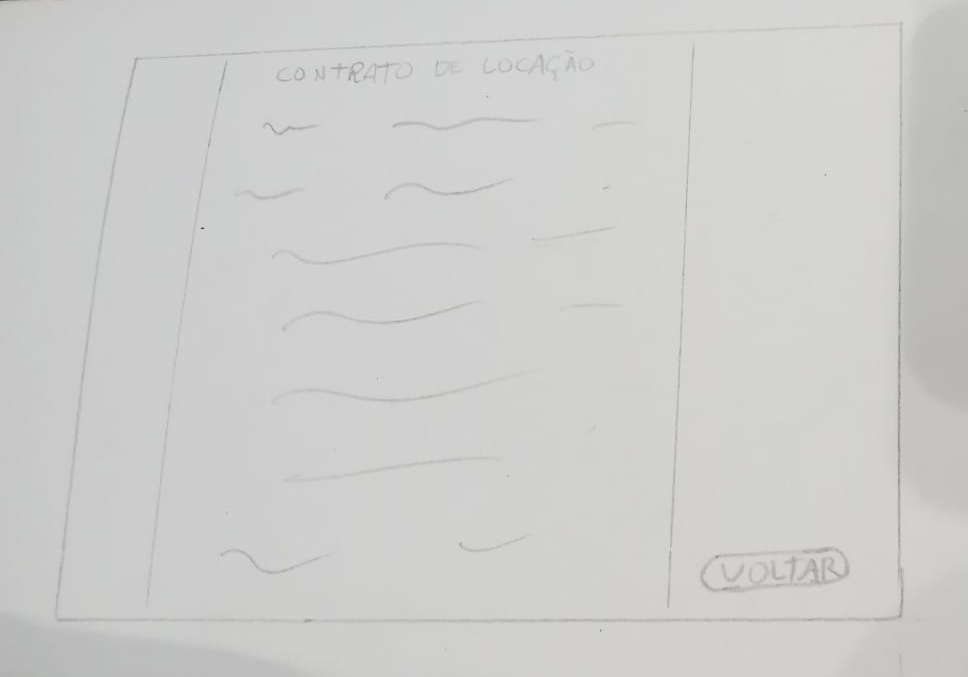 CONTRATO DE LOCAÇÃO
VOLTAR